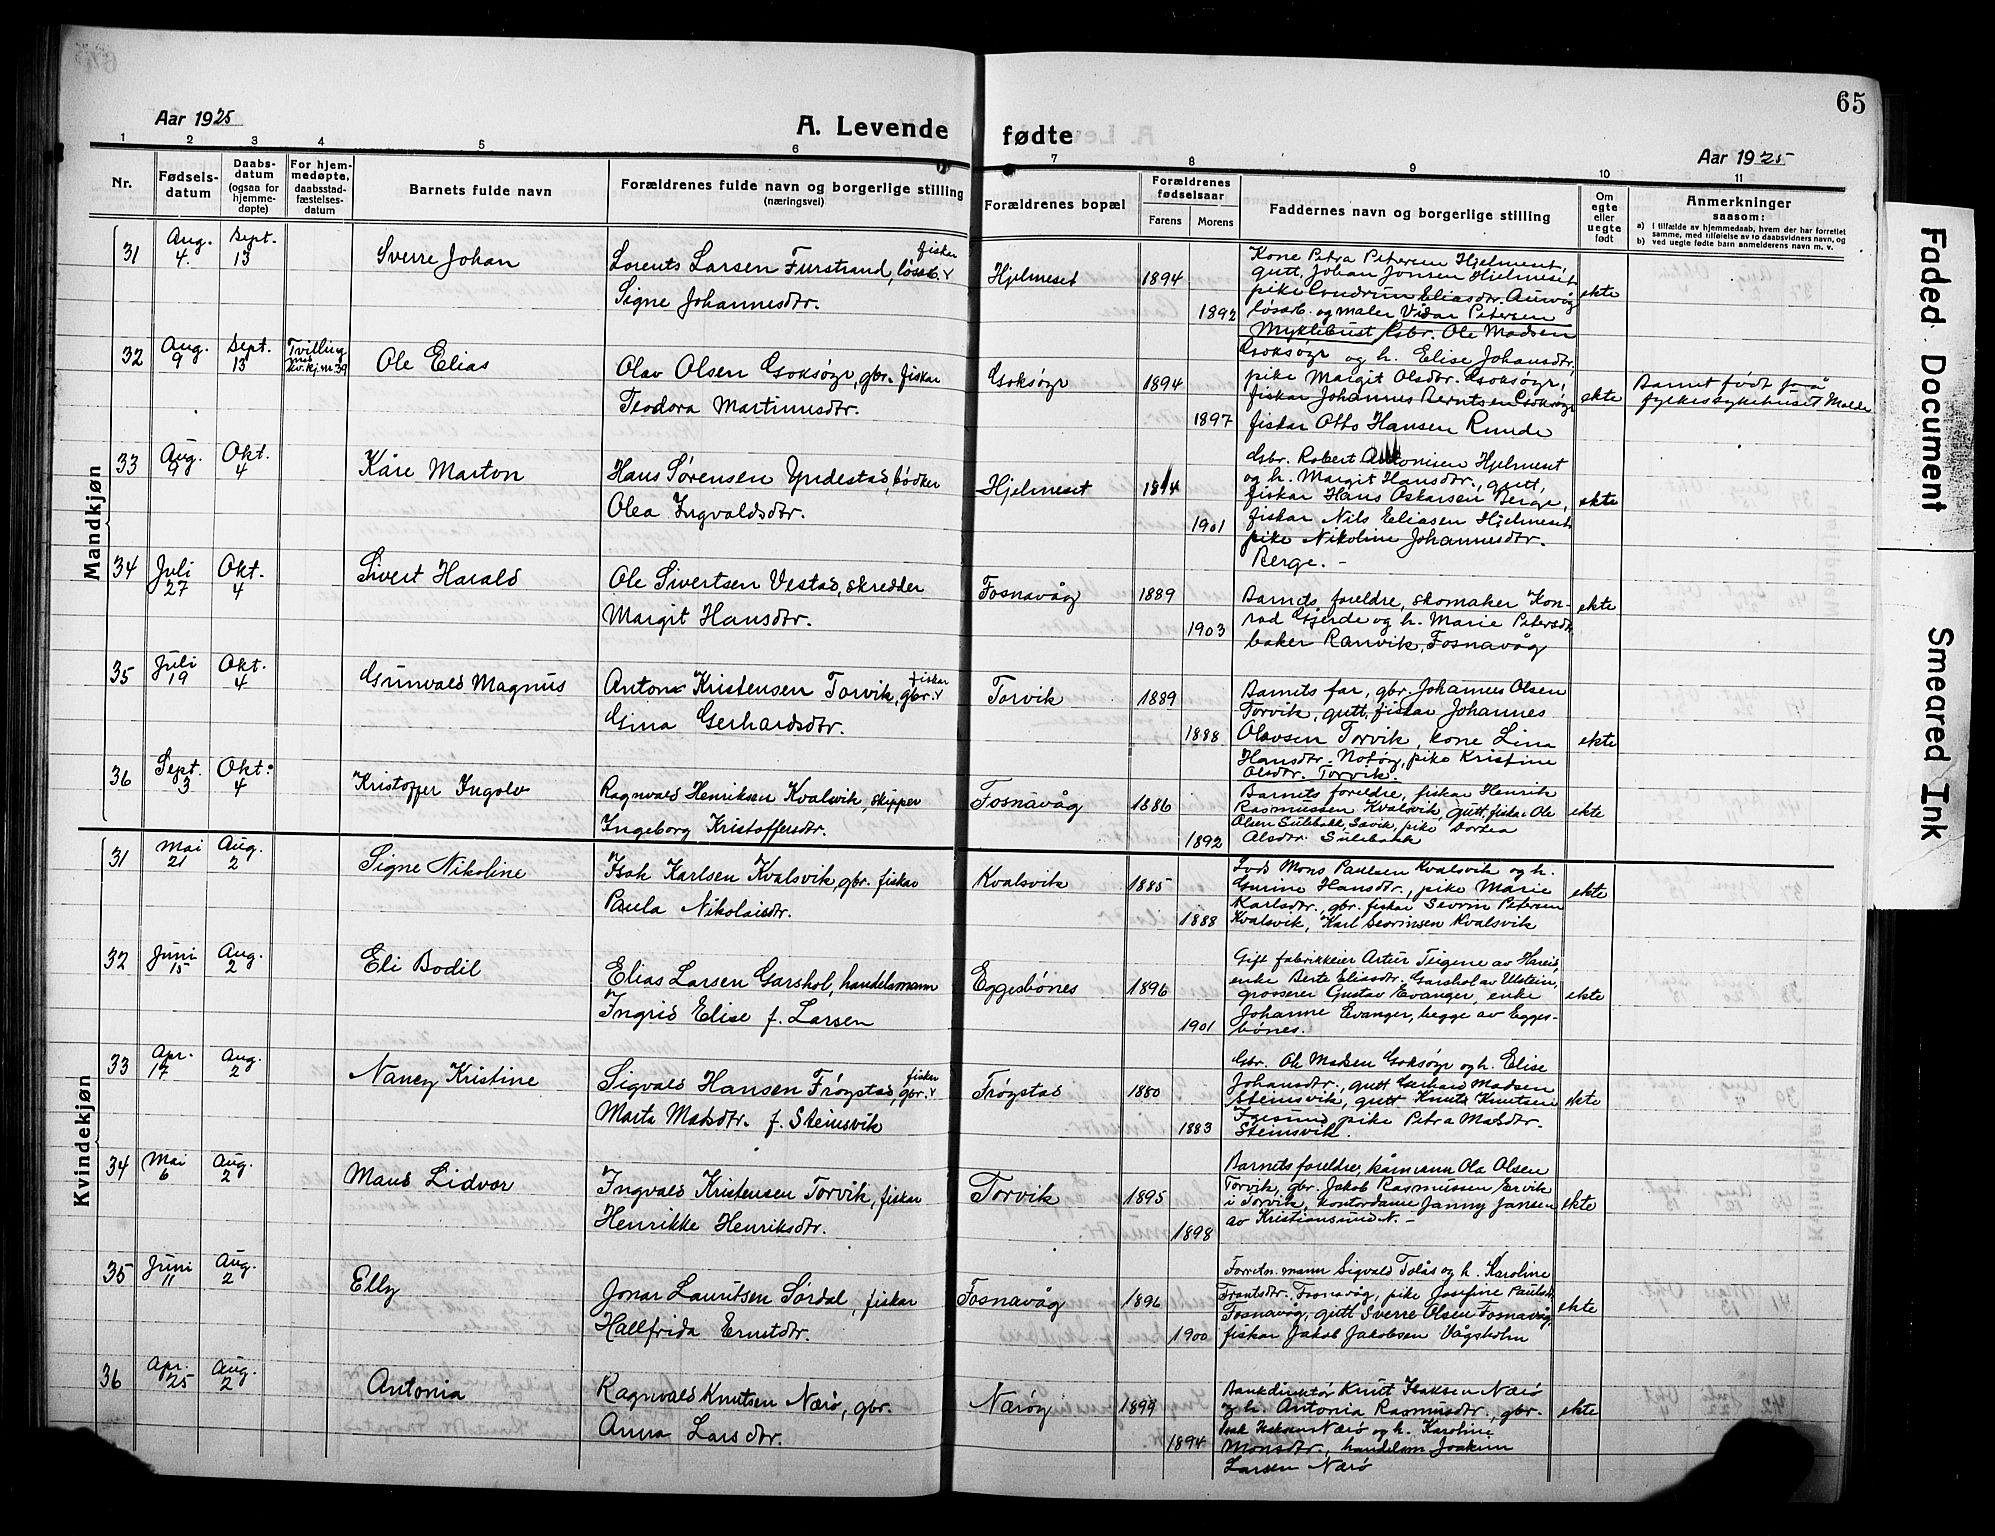 65
Aar 1925
A. Levende fødte
Aar 1925
1 2 3 4 5 6 7 8 9 10 11
Nr.
Fødsels-
datum
Daabs-
datum
(ogsaa for
hjemme-
døpte)
For hjem-
medøpte,
daabsstad-
fæstelses-
datum
Barnets fulde navn
Forældrenes fulde navn og borgerlige stilling
(næringsvei)
Forældrenes bopæl
Forældrenes
fødselsaar
Farens Morens
Faddernes navn og borgerlige stilling
Om
egte
eller
uegte
født
Anmerkninger
saasom:
a) I tilfælde av hjemmedaab, hvem der har forrettet
samme, med tilføielse av to daabsvidners navn, og
b) ved uegte fødte barn anmelderens navn m. v.
Mandkjøn
31 Aug. 4. Sept. 13
Sverre Johan
Lorents Larsen Furstrand, løsarb. fiskar
Signe Johannesdtr.
Hjelmeset
1894
1892
Kone Petra Petersen Hjelmeset,
gutt, Johan Jonsen Hjelmeset
pike Gudrun Eliasdtr. Aurvåg
løsarb. og maler Vidar Petersen
Myklebust
ekte
32 Aug. 9 Sept. 13
Tvilling
med
lev. kj. nr 39
Ole Elias
Olav Olsen Goksøyr, gbr. fiskar
Teodora Martinusdtr.
Goksøyr
1894
1897
Gbr. Ole Madsen
Goksøyr og h. Elise Johansdtr,
pike Margit Olsdtr. Goksøyr,
fiskar Johannes Berntsen Goksøyr
fiskar Otto Hansen Runde
ekte
Barnet født på
fylkessykehuset Molde
33 Aug. 9 Okt. 4
Kåre Marton
Hans Sørensen Yndestad, bødker
Olea Ingvaldsdtr.
Hjelmeset
1901
Gbr. Robert Antonisen Hjelmeset
og h. Margit Hansdtr., gutt,
fiskar Hans Oskarsen Berge,
fiskar Nils Eliasen Hjelmeset
pike Nikoline Johannesdtr.
Berge. –
ekte
34 Juli 27 Okt. 4
Sivert Harald
Ole Sivertsen Vestad, skredder
Margit Hansdtr.
Fosnavåg
1889
1903
Barnets foreldre, skomaker Kon-
rad Gjerde og h. Marie Petersdtr
baker Ranvik, Fosnavåg
ekte
35 Juli 19 Okt. 4
Gunvald Magnus
Anton Kristensen Torvik, gbr. fiskar
Gina Gerhardsdtr.
Torvik
1889
1888
Barnets far, gbr. Johannes Olsen
Torvik, gutt, fiskar Johannes
Olavsen Torvik, kone Lina
Hansdtr. Notøy, pike Kristine
Olsdtr. Torvik.
ekte
36 Sept. 3 Okt. 4
Kristoffer Ingolv
Ragnvald Henriksen Kvalsvik, skipper
Ingeborg Kristoffersdtr.
Fosnavåg
1886
1892
Barnets foreldre, fiskar Henrik
Rasmussen Kvalsvik, gutt, fiskar Ole
Olsen Sulebakk, Sævik, pike Dortea
Olsdtr. Sulebakk
ekte
Kvindekjøn
31 Mai 21 Aug. 2
Signe Nikoline
Isak Karlsen Kvalsvik, gbr. fiskar
Paula Nikolaisdtr.
Kvalsvik
1885
1888
Lods Mons Paulsen Kvalsvik og h.
Gurine Hansdtr., pike Marie
Karlsdtr., gbr. fiskar Severin Petersen
Kvalsvik, Karl Severinsen Kvalsvik
ekte
32 Juni 15 Aug. 2
Eli Bodil
Elias Larsen Garshol, handelsmann
Ingrid Elise f. Larsen
Eggesbønes
1896
1901
Gift fabrikkeier Artur Teigene av Hareid,
enke Berte Eliasdtr. Garshol av Ulstein,
grosserer Gustav Evanger, enke
Johanne Evanger, begge av Egges-
bønes.
ekte
33 Apr. 17 Aug. 2
Nancy Kristine
Sigvald Hansen Frøystad, gbr. fiskar
Marta Madsdtr. f. Steinsvik
Frøystad
1880
1883
Gbr. Ole Madsen Goksøyr og h. Elise
Johansdtr., gutt Gerhard Madsen
Steinsvik, gutt Knut Knutsen
Igesund, pike Petra Madsdtr.
Steinsvik.
ekte
34 Mai 6 Aug. 2
Maud Lidvor
Ingvald Kristensen Torvik, fiskar
Henrikke Henriksdtr.
Torvik
1895
1898
Barnets foreldre, kårmann Ola Olsen
Torvik, gbr. Jakob Rasmussen Ervik
i Torvik, kontordame Janny Jansen
av Kristiansund N. –
ekte
35 Juni 11 Aug. 2
Elly
Jonar Lauritsen Sørdal, fiskar
Hallfrida Ernstdtr.
Fosnavåg
1896
1900
Forretn. mann Sigvald Tolås og h. Karoline
Frantsdtr., Fosnavåg, pike Josefine Paulsdtr
Fosnavåg, gutt Sverre Olsen Fosnavåg,
fiskar Jakob Jakobsen Vågsholm
ekte
36 Apr. 25 Aug. 2
Antonia
Ragnvald Knutsen Nærø, gbr.
Anna Larsdtr.
Nærøy
1899
1894
Bankdirektør Knut Isaksen Nærø
og h. Antonia Rasmusdtr., gbr.
Isak Isaksen Nærø og h. Karoline
Monsdtr., handelsm. Joakim
Larsen Nærø
ekte
Faded Document
Smeared Ink